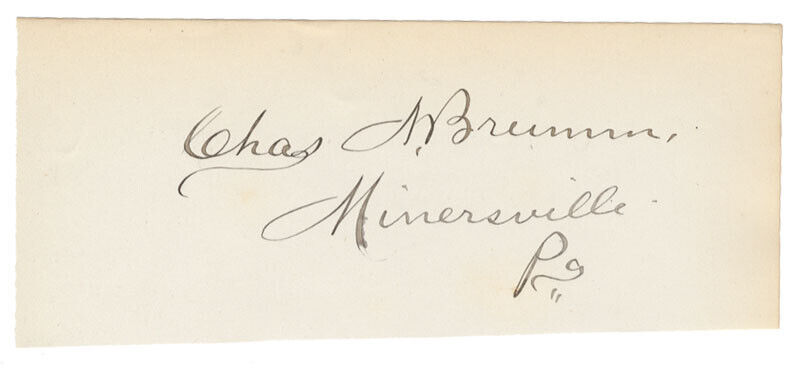 Chas N. Brumm.
Minersville
Pa